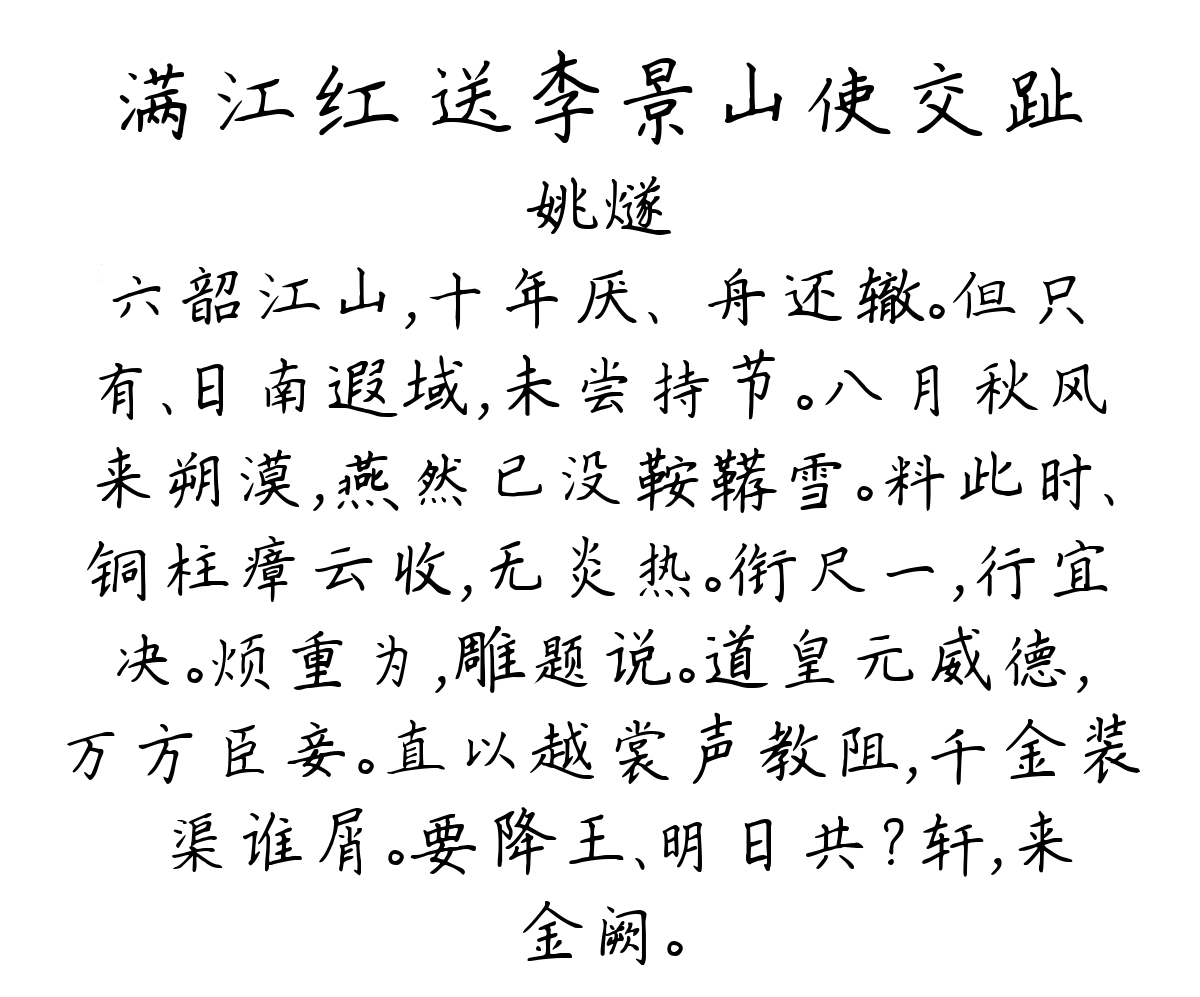 满江红送李景山使交趾
姚燧
六韶江山,十年厌、舟还辙。但只
有、日南遐域,未尝持节。八月秋风
来朔漠,燕然已没鞍鞯雪。料此时、
铜柱瘴云收,无炎热。衔尺一,行宜
决。烦重为,雕题说。道皇元威德,
万方臣妾。直以越裳声教阻,千金装
渠谁屑。要降王、明日共?轩,来
金阙。